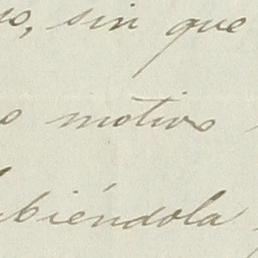 so, sin que
o motivo
biéndola